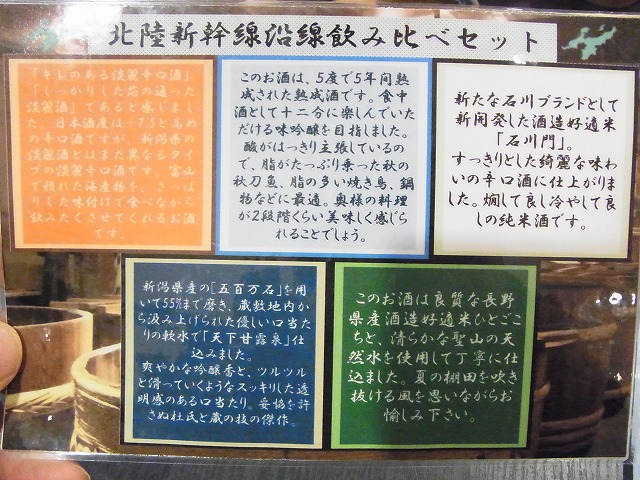 北陸新幹線沿線飲み比べセット
「キレのある淡麗辛口酒」
「しっかりした芯の通った
淡麗酒」であると感じまし
た。日本酒度は+7.5と高め
の辛口酒ですが、新潟県の
淡麗酒とはまた異なるタイ
プの淡麗辛口酒です。富山
で穫れた海産物を、さっぱ
りした味付けで食べながら
飲みたくさせてくれるお酒
です。
このお酒は、5度で5年間熟
成された熟成酒です。食中
酒として十二分に楽しんでい
ただける味吟醸を目指しました。
酸がはっきり主張しているの
で、脂がたっぷり乗った秋の
秋刀魚、脂の多い焼き鳥、鍋
物などに最適。奥様の料理
が2段階くらい美味しく感じら
れることでしょう。
新たな石川ブランドとして
新開発した酒造好適米
「石川門」。
すっきりとした綺麗な味わ
いの辛口酒に仕上がりま
した。燗して良し冷やして良
しの純米酒です。
新潟県産の「五百万石」を用
いて55%まで磨き、蔵敷地内か
ら汲み上げられた優しい口当た
りの軟水で「天下甘露泉」仕
込みました。
爽やかな吟醸香と、ツルツル
と滑っていくようなスッキリした透
明感のある口当たり。妥協を許
さぬ杜氏と蔵の技の傑作。
このお酒は良質な長野
県産酒造好適米ひとごこ
ちと、清らかな聖山の天
然水を使用して丁寧に仕
込ました。夏の棚田を吹き
抜ける風を思いながらお
愉しみ下さい。